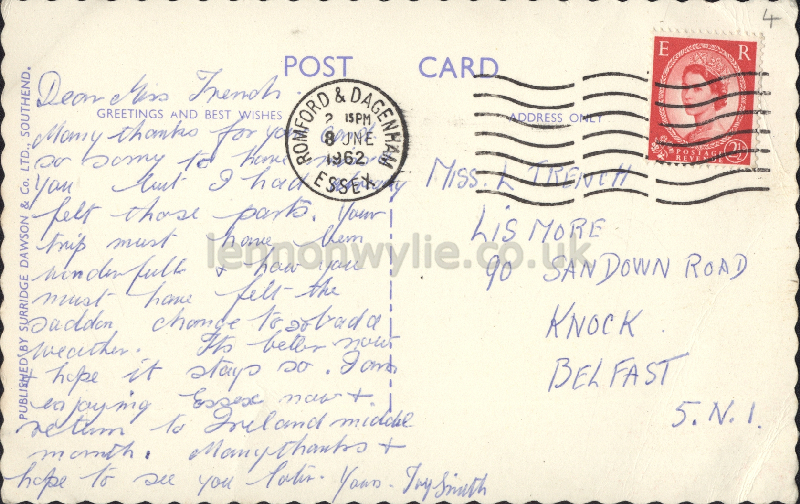 POST CARD
GREETINGS AND BEST WISHES
ADDRESS ONLY
PUBLISHED BY SURRIDGE DAWSON & Co. LTD., SOUTHEND.
Dear Miss Trench.
Many thanks for your
so sorry to have
you but I had already
felt those parts. Your
trip must have been
wonderfull & how you
must have felt the
sadden change to so bad a
weather. Its better now
& hope it stays so. I am
enjoying Essex now &
return to Ireland middle
month. Many thanks &
hope to see you later. Yours - Joy Smith
ROMFORD & DAGENHAM
2 15PM
8 JNE
1962
ESSEX
E R
POSTAGE
REVENUE
2½
4
MISS. L TRENCH
LISMORE
90 SANDOWN ROAD
KNOCK
BELFAST
5. N.I.
lennonwylie.co.uk